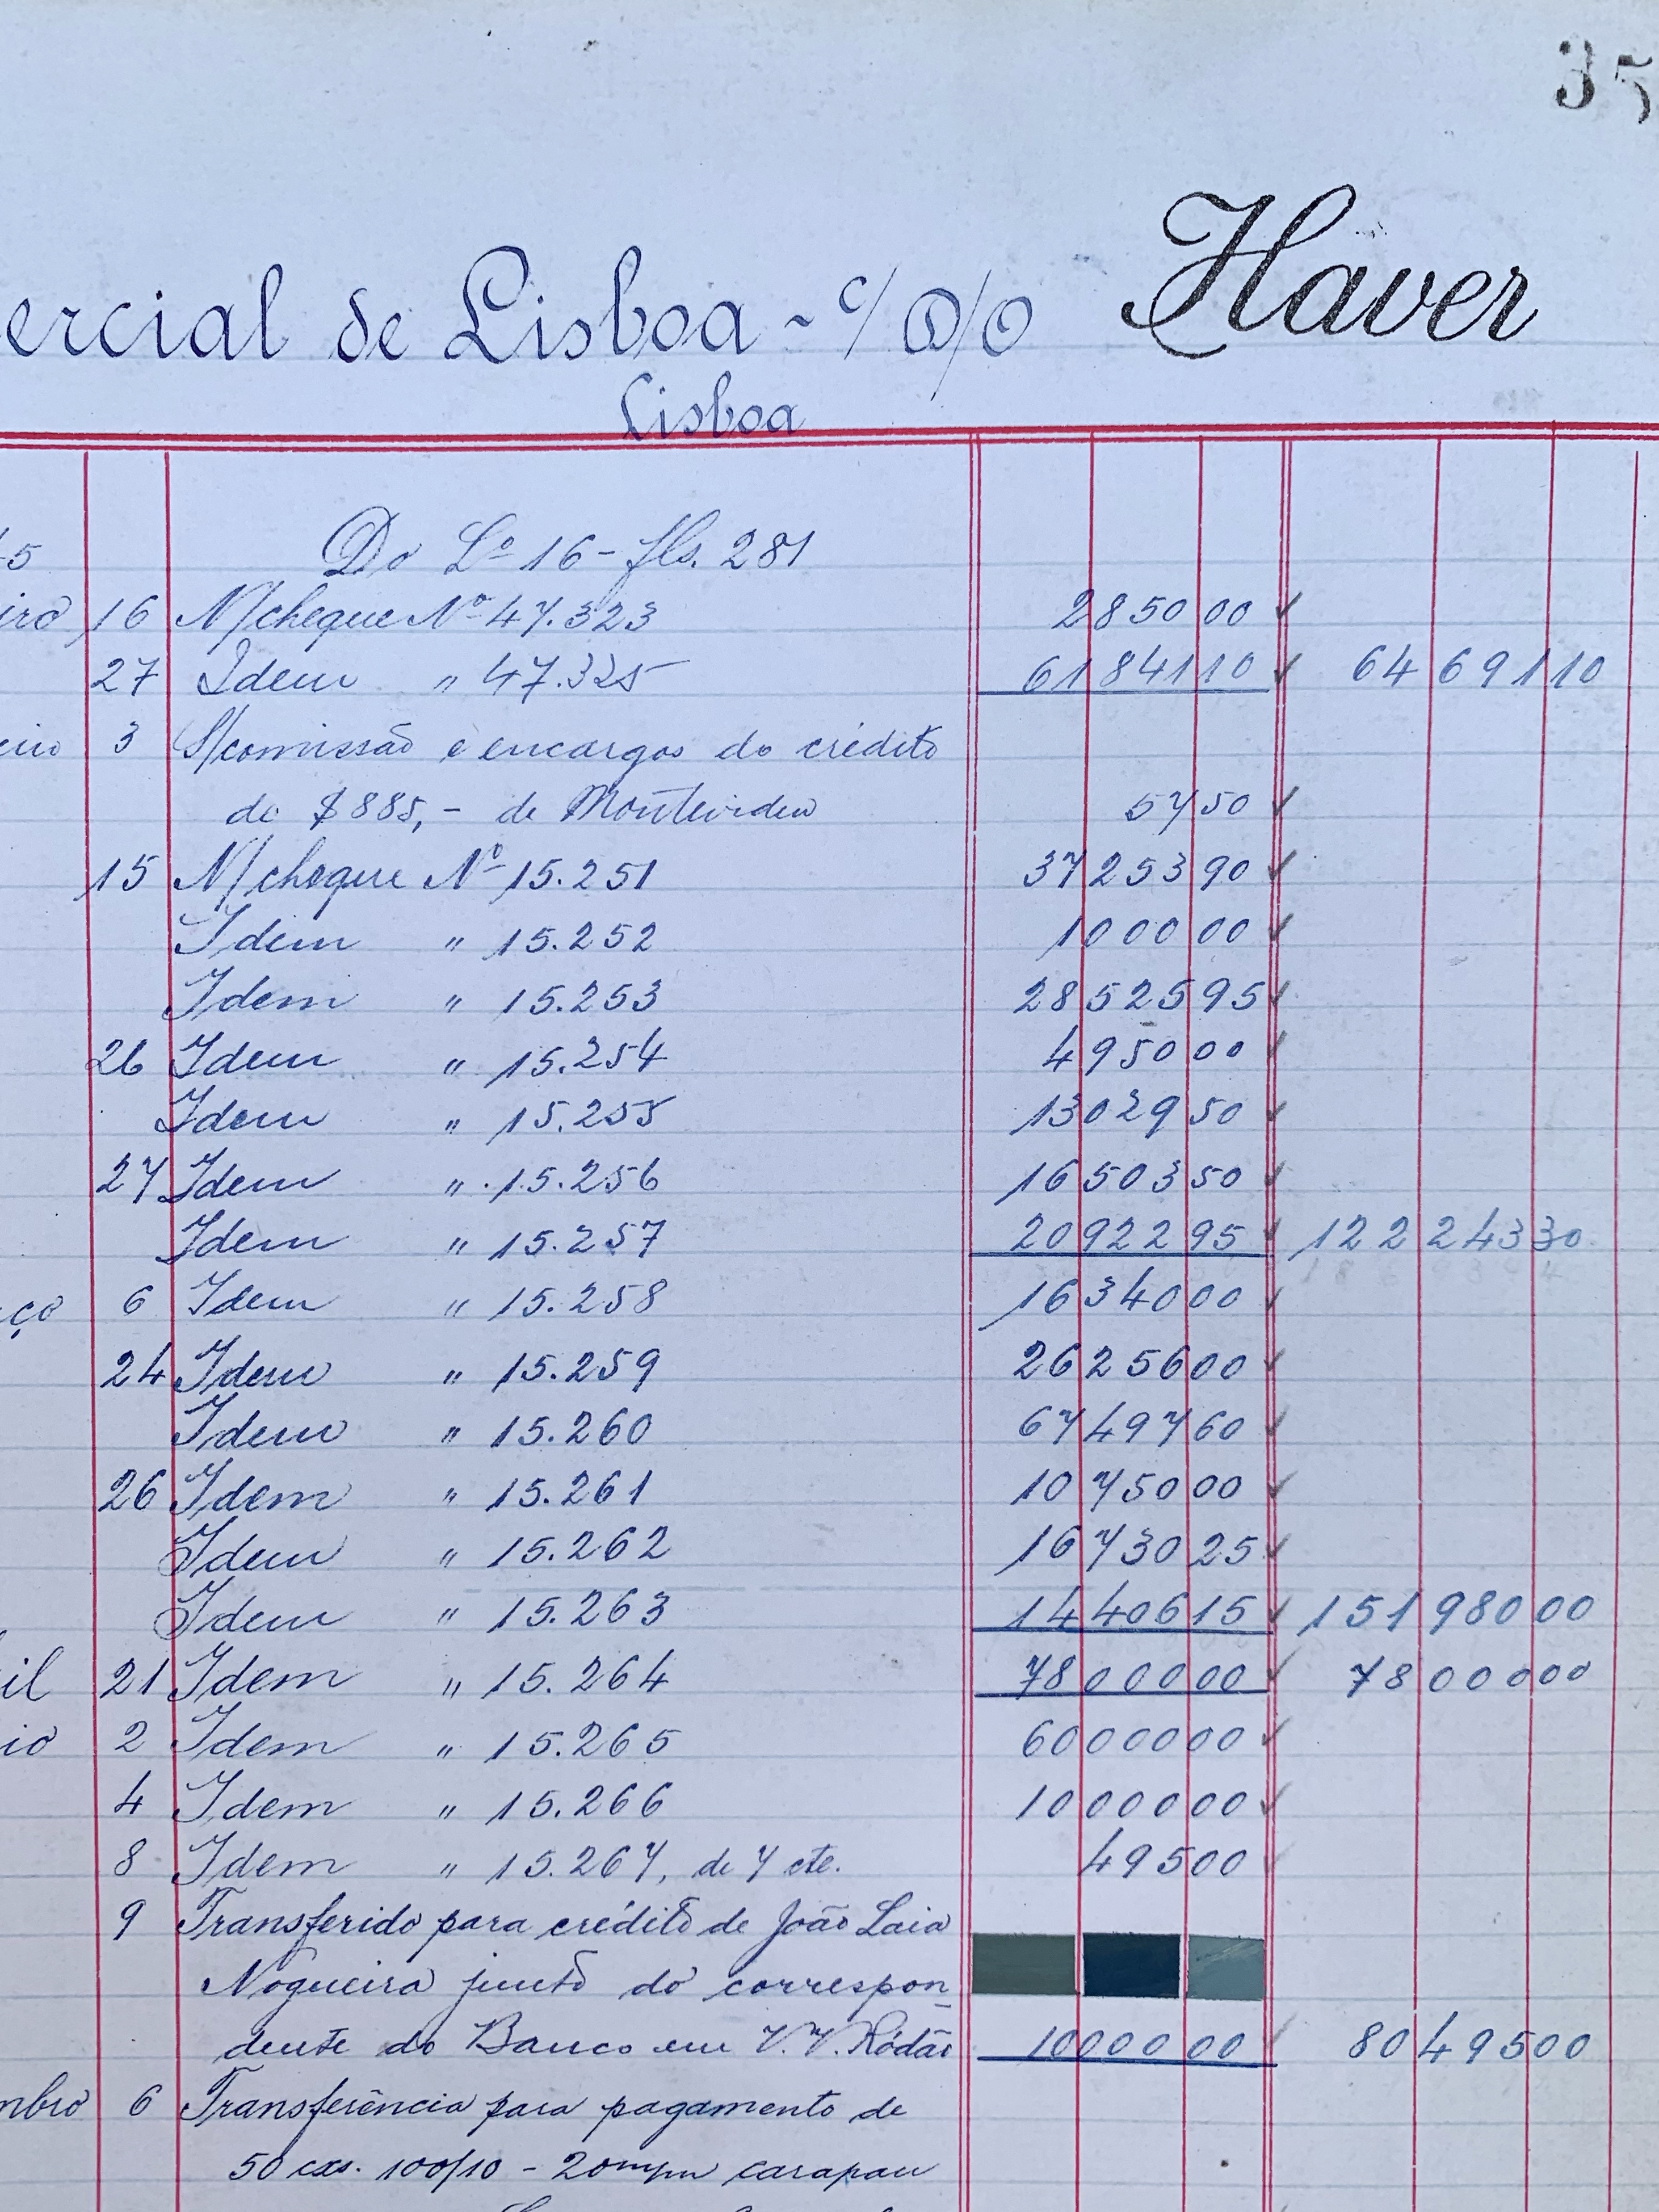 35
ercial de Lisboa ~ c/ D/O Haver
Lisboa
Do Lº 16 - fls. 281
16 N/cheque Nº 47.323 285000
27 Idem " 47.325 6184110 6469110
3 S/comissão e encargos do crédito
de $885,- de Montevideu 5750
15 N/cheque Nº 15.251 3725390
Idem " 15.252 100000
Idem " 15.253 2852595
26 Idem " 15.254 495000
Idem " 15.255 1302950
27 Idem " 15.256 1650350
Idem " 15.257 2092295 12224330
ço 6 Idem " 15.258 1634000
24 Idem " 15.259 2625600
Idem " 15.260 6749760
26 Idem " 15.261 1075000
Idem " 15.262 1673025
Idem " 15.263 1440615 15198000
il 21 Idem " 15.264 7800000 7800000
io 2 Idem " 15.265 6000000
4 Idem " 15.266 1000000
8 Idem " 15.267, de 7 cte. 49500
9 Transferido para crédito de João Laia
Nogueira junto do correspon-
dente do Banco em V. V. Ródão 1000000 8049500
mbro 6 Transferência para pagamento de
50 cxs. 100/10 - 20m/m carapau